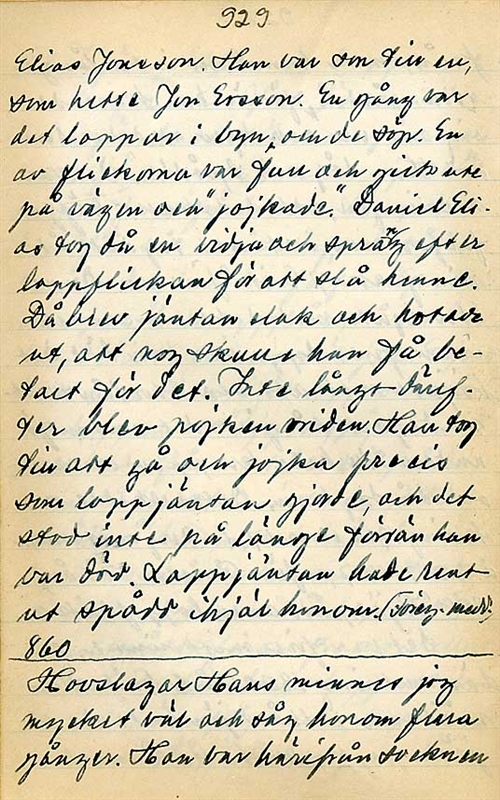 929
Elias Jonsson. Han var son till en,
som hette Jon Ersson. En gång var
det lappar i byn, och de söp. En
av flickorna var full och gick ute
på vägen och "jojkade". Daniel Eli-
as tog då en vidja och sprang efter
lappflickan för att slå henne.
Då blev jäntan elak och hotade
ut, att nog skulle han få be-
talt för det. Inte långt däref-
ter blev pojken vriden. Han tog
till att gå och jojka precis
som lappjäntan gjorde, och det
stod inte på länge förrän han
var död. Lappjäntan hade rent
ut spått ihjäl honom. (Föreg. medd.)
860
Hovslagar Hans minnes jag
mycket väl och såg honom flera
gånger. Han var härifrån socknen